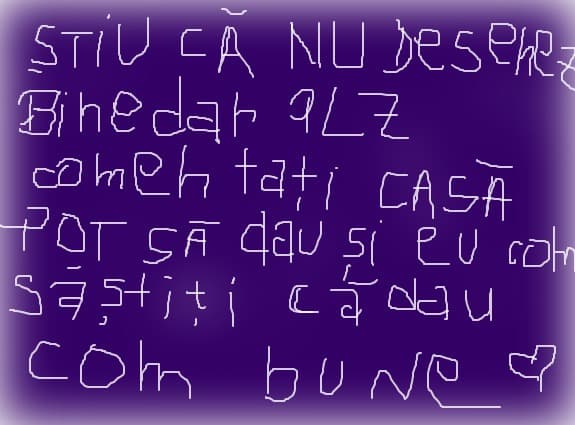 STIU CĂ NU DeseheZ
Bine dar PLZ
comentați CASĂ
POT SĂ dau si eu com
Săștiți cădau
com bune ♡